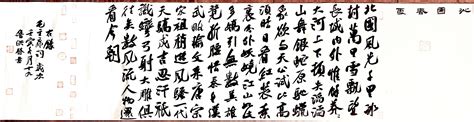 沁園春雪
北國風光千里冰
封萬里雪飄望
長城內外惟餘莽莽
大河上下頓失滔滔
山舞銀蛇原馳蠟
象欲與天公試比高
須晴日看紅裝素
裹分外妖嬈江山如此
多嬌引無數英雄
競折腰惜秦皇漢
武略輸文采唐宗
宋祖稍遜風騷一代
天驕成吉思汗祇
識彎弓射大雕俱
往矣數風流人物還
看今朝
右錄
毛主席詞